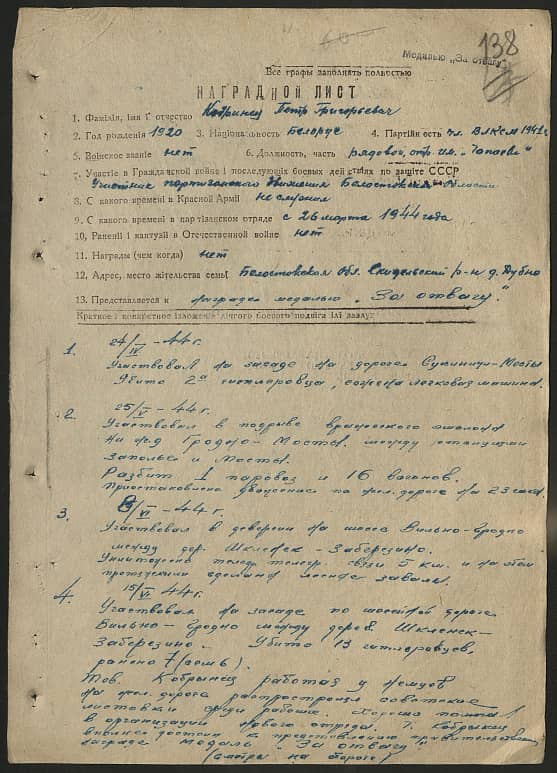 138
Медалью „За отвагу"
Все графы заполнять полностью
НАГРАДНОЙ ЛИСТ
1. Фамілія, імя і отчество Кобринец Петр Григорьевич
2. Год рождения 1920 3. Національность Белорус 4. Партійность чл. ВЛКСМ 1941 г
5. Воинское званіе нет 6. Должность, часть рядовой, отр. им. „Чапаева"
7. Участіе в Граждаской войне і последующіх боевых действіях по защіте СССР
Участник партизанского движения Белостокской области
8. С какого времени в Красной Армії не служил
9. С какого времени в партізанском отряде с 26 марта 1944 года
10. Раненіі і кантузіі в Отечественной войне нет
11. Награды (чем когда) нет
12. Адрес, место жітельства семьі Белостокской обл. Скидельский р-н д. Дубно
13. Представляется к награде медалью „За отвагу"
Краткое і конкретное ізложеніе лічного боевого подвіга ілі заслуг
1. 24/IV-44 г.
Участвовал на засаде на дороге Мосты
Убито 2а гитлеровца, сожжена легковая машина.
2. 25/V-44 г.
Участвовал в подрыве вражеского эшелона
на ж.д Гродно-Мосты между станциями
Заполье и Мосты.
Разбит 1 паровоз и 16 вагонов.
Приостановлено движение по жел. дороге на 23 часа.
3. /VI-44 г.
Участвовал в диверсии на шоссе Вильно-Гродно
между дер. Шкленск-Заберезино.
Уничтожено телеф. телегр. связи 5 км. и на этом
протяжении сделаны лесные завалы.
4. 15/VI-44 г.
Участвовал на засаде по шоссейной дороге
Вильно-Гродно между дерев. Шкленск-
Заберезино. Убито 13 гитлеровцев,
ранено 7 (семь).
Тов. Кобринец работая у немцев
на жел. дороге распространял советские
листовки среди рабочих. Хорошо помогал
в организации нового отряда. Т. Кобринец
вполне достоин к представлению правительственной
награде медаль „За отвагу"
(смотри на обороте)